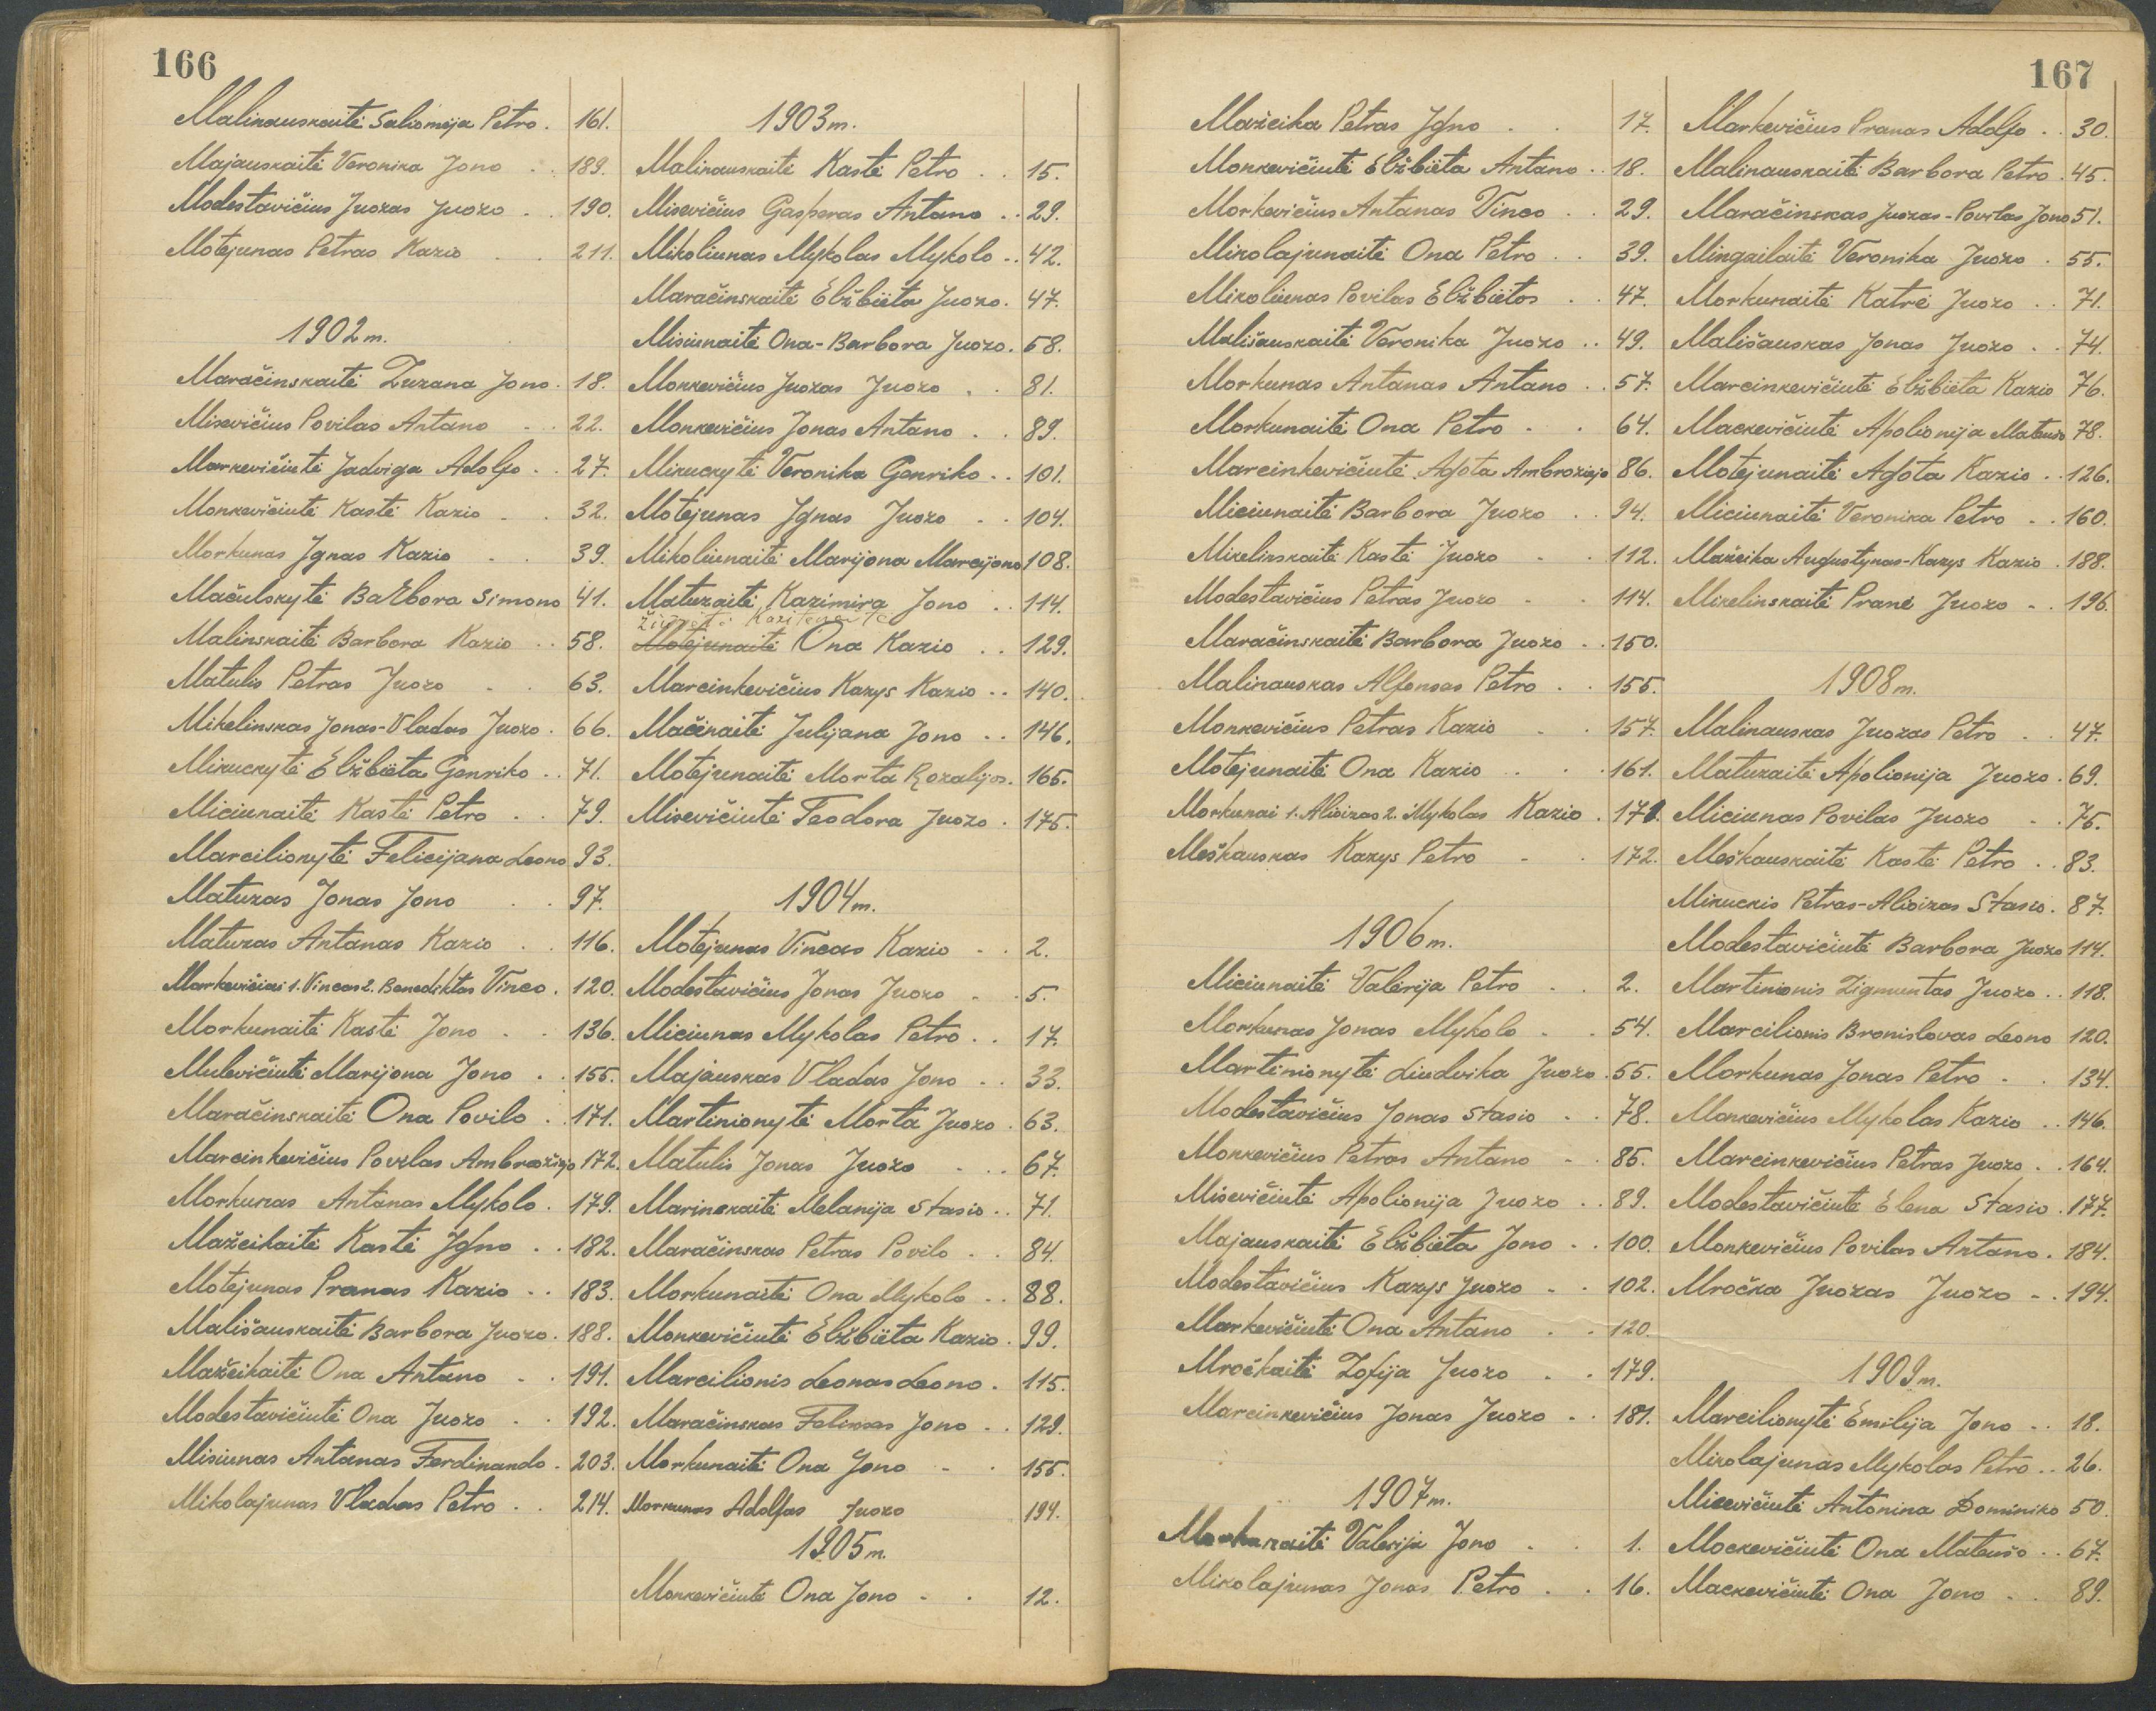 166
Malinauskaitė Saliomėja Petro. 161.
Majauskaitė Veronika Jono . . 189.
Modestavičius Juozas Juozo . . 190.
Motejunas Petras Kazio . . 211.
1902 m.
Maračinskaitė Zuzana Jono. 18.
Misevičius Povilas Antano . . 22.
Markevičiutė Jadviga Adolfo . . 27.
Monkevičiutė Kastė Kazio . . 32.
Morkunas Ignas Kazio . . 39.
Mačulskytė Barbora Simono 41.
Malinskaitė Barbora Kazio . . 58.
Matulis Petras Juozo . . 63.
Mikelinskas Jonas-Vladas Juozo . 66.
Mikuckytė Elžbieta Genriko . . 71.
Miciunaitė Kastė Petro . . 79.
Marcilionytė Felicijana Leono 93.
Matuzas Jonas Jono . . 97.
Matuzas Antanas Kazio . . 116.
Markevičiai 1. Vincas 2. Benediktas Vinco . 120.
Morkunaitė Kastė Jono . . 136.
Mulevičiutė Marijona Jono . . 155.
Maračinskaitė Ona Povilo . . 171.
Marcinkevičius Povilas Ambroziejo 172.
Morkunas Antanas Mykolo . 179.
Mažeikaitė Kastė Igno . . 182.
Motejunas Pranas Kazio . . 183.
Mališauskaitė Barbora Juozo. 188.
Mažeikaitė Ona Antano . . 191.
Modestavičiutė Ona Juozo . . 192.
Misiunas Antanas Ferdinando . 203.
Mikolajunas Vladas Petro . . 214.
1903 m.
Malinauskaitė Kastė Petro . . 15.
Misevičius Gasparas Antano . . 29.
Mikoliunas Mykolas Mykolo . . 42.
Maračinskaitė Elžbieta Juozo. 47.
Misiunaitė Ona-Barbora Juozo. 58.
Monkevičius Juozas Juozo . . 81.
Monkevičius Jonas Antano . . 89.
Mikuckytė Veronika Genriko . . 101.
Motejunas Ignas Juozo . . 104.
Mikoliunaitė Marijona Marcijono 108.
Matuzaitė Kazimira Jono . . 114.
Motejunaitė Ona Kazio . . 129.
Marcinkevičius Kazys Kazio . . 140.
Mačinaitė Julijana Jono . . 146.
Motejunaitė Morta Rozalijos. 165.
Misevičiutė Teodora Juozo . 175.
1904 m.
Motejunas Vincas Kazio . . 2.
Modestavičius Jonas Juozo . . 5.
Miciunas Mykolas Petro . . 17.
Majauskas Vladas Jono . . 33.
Martinionytė Morta Juozo . 63.
Matulis Jonas Juozo . . . 67.
Marinskaitė Melanija Stasio . . 71.
Maračinskas Petras Povilo . . 84.
Morkunaitė Ona Mykolo . . 88.
Monkevičiutė Elžbieta Kazio . 99.
Marcilionis Leonas Leono . 115.
Maračinskas Feliksas Jono . . 129.
Morkunaitė Ona Jono . . 155.
Morkunas Adolfas Juozo 194.
1905 m.
Monkevičiutė Ona Jono . . 12.
167
Mažeika Petras Igno . . 17.
Monkevičiutė Elžbieta Antano . . 18.
Morkevičius Antanas Vinco . . 29.
Mikolajunaitė Ona Petro . . 39.
Mikoliunas Povilas Elžbietos . . 47.
Mališauskaitė Veronika Juozo . . 49.
Morkunas Antanas Antano . . 57.
Morkunaitė Ona Petro . . 64.
Marcinkevičiutė Agota Ambroziejo 86.
Miciunaitė Barbora Juozo . . 94.
Mikelinskaitė Kastė Juozo . . 112.
Modestavičius Petras Juozo . . 114.
Maračinskaitė Barbora Juozo . . 150.
Malinauskas Alfonsas Petro . . 155.
Monkevičius Petras Kazio . . 157.
Motejunaitė Ona Kazio . . . 161.
Morkunai 1. Alioizas 2. Mykolas Kazio . 171.
Meškauskas Kazys Petro . . 172.
1906 m.
Miciunaitė Valerija Petro . . 2.
Morkunas Jonas Mykolo . . 54.
Martinionytė Liudvika Juozo . 55.
Modestavičius Jonas Stasio . . 78.
Monkevičius Petras Antano . . 85.
Misevičiutė Apolionija Juozo . . 89.
Majauskaitė Elžbieta Jono . . 100.
Modestavičius Kazys Juozo . . 102.
Markevičiutė Ona Antano . . 120.
Mročkaitė Zofija Juozo . . 179.
Marcinkevičius Jonas Juozo . . 181.
1907 m.
Morkunaitė Valerija Jono . . 1.
Mikolajunas Jonas Petro . . 16.
Markevičius Pranas Adolfo . . 30.
Malinauskaitė Barbora Petro . 45.
Maračinskas Juozas-Povilas Jono 51.
Mingailaitė Veronika Juozo . 55.
Morkunaitė Katrė Juozo . . 71.
Mališauskas Jonas Juozo . . 74.
Marcinkevičiutė Elžbieta Kazio 76.
Mackevičiutė Apolionija Mateušo 78.
Motejunaitė Agota Kazio . . 126.
Miciunaitė Veronika Petro . . 160.
Mažeika Augustynas-Kazys Kazio . 188.
Mikelinskaitė Pranė Juozo . . 196.
1908 m.
Malinauskas Juozas Petro . . 47.
Matuzaitė Apolionija Juozo . 69.
Miciunas Povilas Juozo . . 75.
Meškauskaitė Kastė Petro . . 83.
Mikuckis Petras-Alioizas Stasio . 87.
Modestavičiutė Barbora Juozo 114.
Martinionis Zigmuntas Juozo . . 118.
Marcilionis Bronislovas Leono 120.
Morkunas Jonas Petro . . 134.
Monkevičius Mykolas Kazio . . 146.
Marcinkevičius Petras Juozo . . 164.
Modestavičiutė Elena Stasio . 177.
Monkevičius Povilas Antano . 184.
Mročka Juozas Juozo . . 194.
1909 m.
Marcilionytė Emilija Jono . . 18.
Mikolajunas Mykolas Petro . . 26.
Misevičiutė Antonina Dominiko 50.
Mockevičiutė Ona Mateušo . . 67.
Mackevičiutė Ona Jono . . 89.